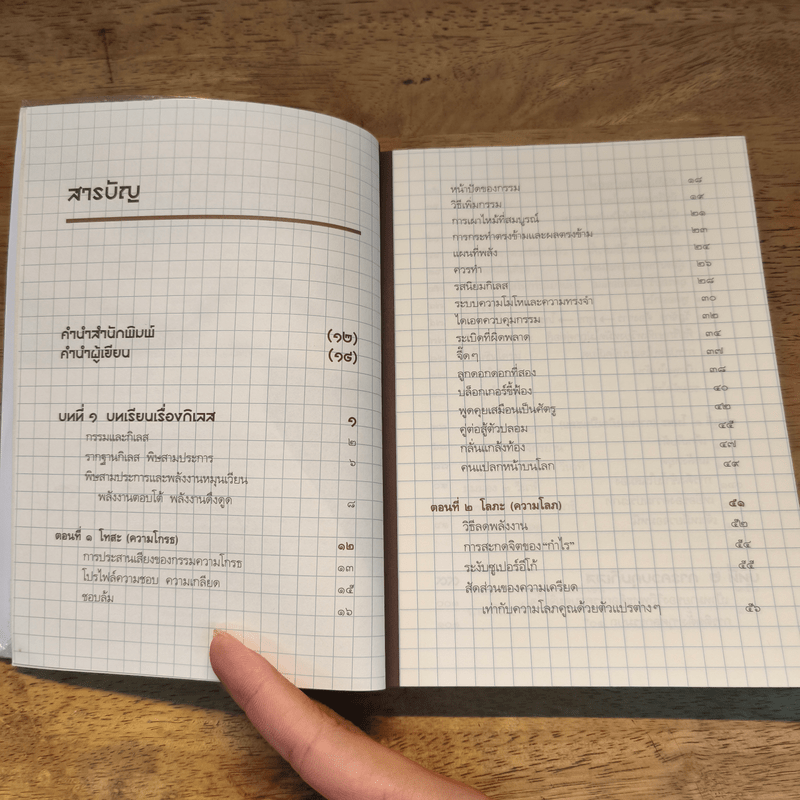 สารบัญ
คำนำสำนักพิมพ์ (๑๒)
คำนำผู้เขียน (๑๔)
บทที่ ๑ บทเรียนเรื่องกิเลส ๑
กรรมและกิเลส ๒
รากฐานกิเลส พิษสามประการ ๖
พิษสามประการและพลังงานหมุนเวียน
พลังงานตอบโต้ พลังงานดึงดูด ๘
ตอนที่ ๑ โทสะ (ความโกรธ) ๑๒
การประสานเสียงของกรรมความโกรธ ๑๓
โปรไฟล์ความชอบ ความเกลียด ๑๕
ชอบล้ม ๑๖
หน้าปัดของกรรม ๑๘
วิธีเพิ่มกรรม ๑๙
การเผาไหม้ที่สมบูรณ์ ๒๑
การกระทำตรงข้ามและผลตรงข้าม ๒๓
แผนที่พลัง ๒๔
ควรทำ ๒๖
รสนิยมกิเลส ๒๘
ระบบความโมโหและความทรงจำ ๓๐
ไดเอตควบคุมกรรม ๓๒
ระเบิดที่ผิดพลาด ๓๔
จี๊ดๆ ๓๗
ลูกดอกดอกที่สอง ๓๘
บล็อกเกอร์ขี้ฟ้อง ๔๐
พูดคุยเสมือนเป็นศัตรู ๔๒
คู่ต่อสู้ตัวปลอม ๔๕
กลั่นแกล้งท้อง ๔๗
คนแปลกหน้าบนโลก ๔๙
ตอนที่ ๒ โลภะ (ความโลภ) ๕๑
วิธีลดพลังงาน ๕๒
การสะกดจิตของ"กำไร" ๕๔
ระงับซูเปอร์อีโก้ ๕๕
สัดส่วนของความเครียด
เท่ากับความโลภคูณด้วยตัวแปรต่างๆ ๕๖